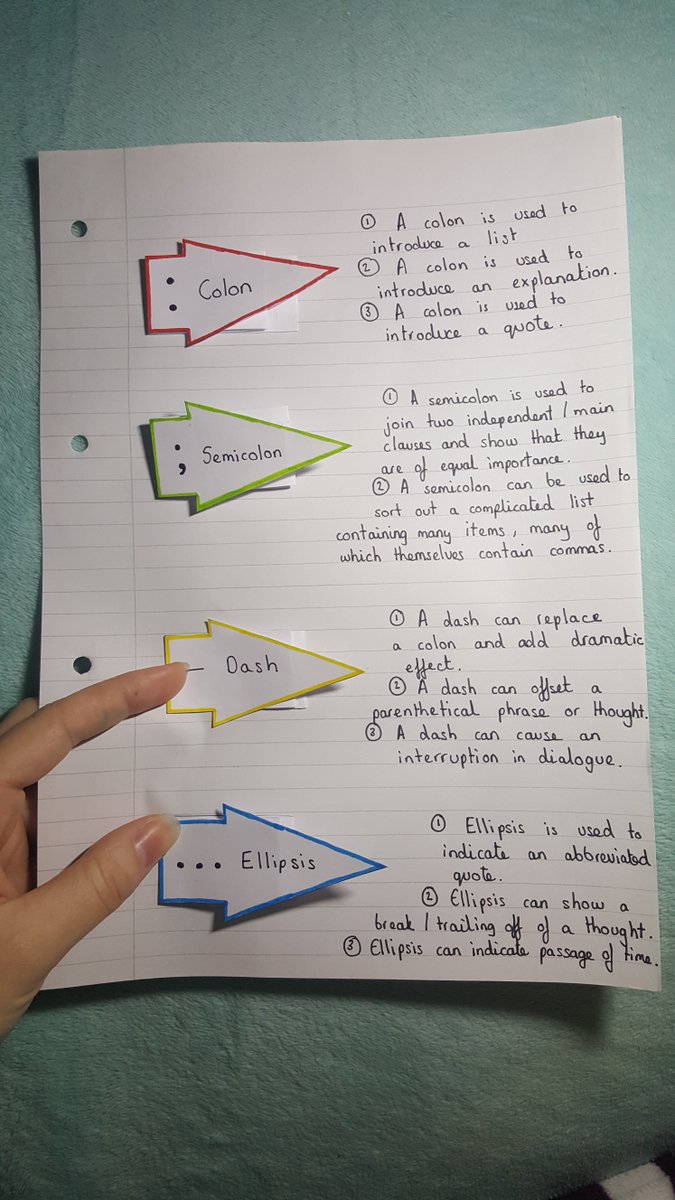 : Colon
① A colon is used to
introduce a list
② A colon is used to
introduce an explanation.
③ A colon is used to
introduce a quote.
; Semicolon
① A semicolon is used to
join two independent / main
clauses and show that they
are of equal importance.
② A semicolon can be used to
sort out a complicated list
containing many items, many of
which themselves contain commas.
– Dash
① A dash can replace
a colon and add dramatic
effect.
② A dash can offset a
parenthetical phrase or thought.
③ A dash can cause an
interruption in dialogue.
... Ellipsis
① Ellipsis is used to
indicate an abbreviated
quote.
② Ellipsis can show a
break / trailing off of a thought.
③ Ellipsis can indicate passage of time.